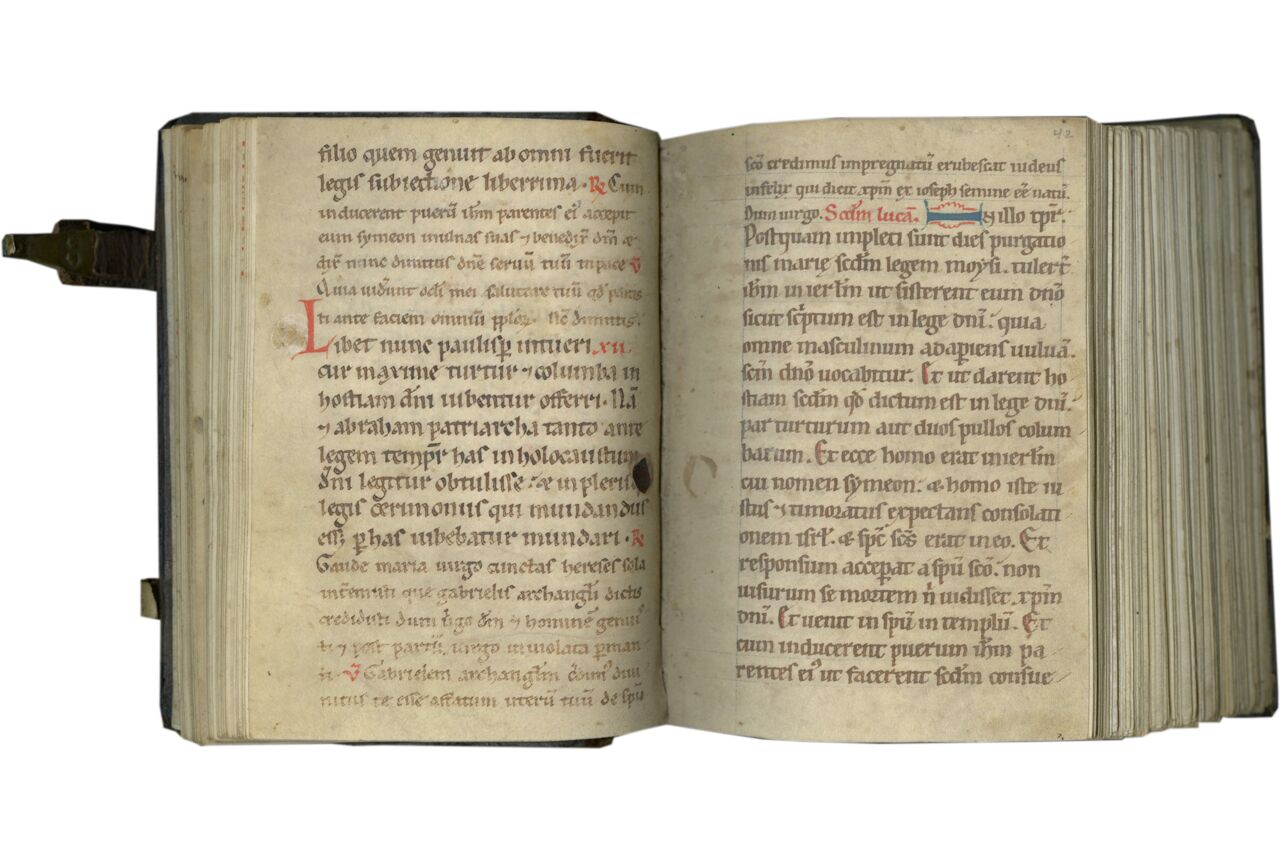 filio quem genuit ab omni fuerit
legis subiectione liberrima · R̃ Cum
inducerent puerū ihm̄ parentes ei᾽ accepit
eum symeon in ulnas suas ⁊ benedix̄ dm̄ ⁊
dix̄ nunc dimittis dn̄e seruū tuū in pace V̄
Quia uider̄unt oc̄li mei salutare tuū qd̄ paras
ti ante faciem omniū pp̄loꝝ. Nc̄ dimittis.
Libet nunc paulisꝑ intueri .xii.
cur maxime turtur ⁊ columba in
hostiam dn̄i iubentur offerri. Nā
⁊ abraham patriarcha tanto ante
legem temp̄r has in holocaustum
dn̄i legitur obtulisse. & in pleris
legis cerimoniis qui mundandus
esset ꝑ has iubebatur mundari. R̃
Gaude maria uirgo cunctas hereses sola
interemisti que gabrielis archangl̄i dictis
credidisti dum ū̊go dm̄ ⁊ hominē genuis
ti ⁊ post partū uirgo inuiolata ꝑman
V̄ Gabrielem archanglm̄
nitus te esse affatum uterū tuū de spū
42
sc̄o credimus impregnatū erubescat iudeus
infelix qui dicit xpm̄ ex ioseph semine eē̄ natū.
Dum uirgo. Scdm̄ lucā. In illo tp̄r.
Postquam impleti sunt dies purgatio
nis marię scdm̄ legem moysi. tuler̄t
ihm̄ in ierl̄m ut sisterent eum dn̄o
sicut sc̄ptum est in lege dn̄i. quia
omne masculinum adapiens uuluā.
sc̄m dn̄o uocabitur. Et ut darent ho
stiam scdm̄ qd̄ dictum est in lege dn̄i.
par turturum aut duos pullos colum
barum. Et ecce homo erat in ierl̄m
cui nomen symeon. & homo iste iu
stus ⁊ timoratus expectans consolati
onem isrl̄. & sp̄c sc̄s erat in eo. Et
responsum acceꝑat a spū sc̄o. non
uisurum se mortem n̄ uidisset xpm̄
dn̄i. Et uenit in spū in templū. Et
cum inducerent puerum ihm̄ pa
rentes ei᾽ ut facerent scdm̄ consue